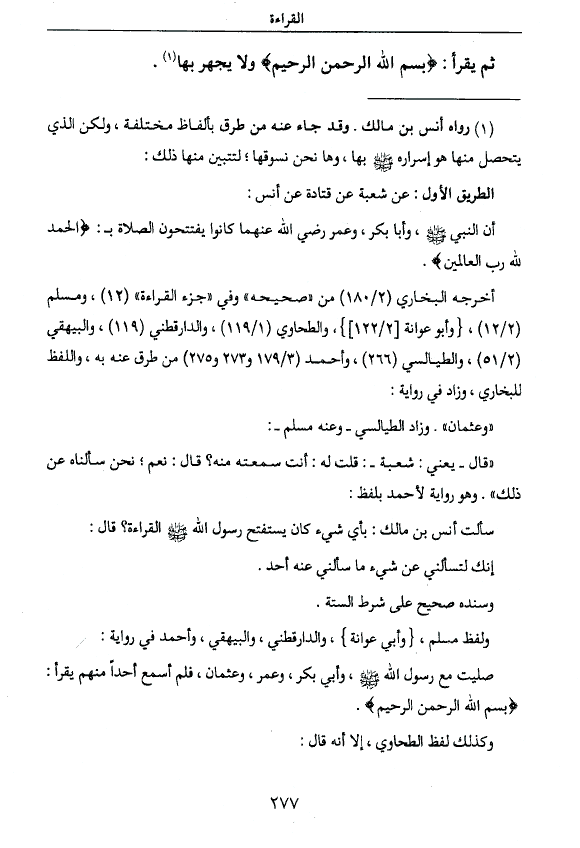 القراءة
ثم يقرأ : ﴿بسم الله الرحمن الرحيم﴾ ولا يجهر بها(١) .
(١) رواه أنس بن مالك . وقد جاء عنه من طرق بألفاظ مختلفة ، ولكن الذي
يتحصل منها هو إسراره ﷺ بها ، وها نحن نسوقها ؛ لتتبين منها ذلك :
الطريق الأول : عن شعبة عن قتادة عن أنس :
أن النبي ﷺ ، وأبا بكر ، وعمر رضي الله عنهما كانوا يفتتحون الصلاة بـ : ﴿الحمد
لله رب العالمين﴾ .
أخرجه البخاري (١٨٠/٢) من «صحيحه» وفي «جزء القراءة» (١٢) ، ومسلم
(١٢/٢) ، {وأبو عوانة [١٢٢/٢]} ، والطحاوي (١١٩/١) ، والدارقطني (١١٩) ، والبيهقي
(٥١/٢) ، والطيالسي (٢٦٦) ، وأحمد (١٧٩/٣ و٢٧٣ و٢٧٥) من طرق عنه به ، واللفظ
للبخاري ، وزاد في رواية :
«وعثمان» . وزاد الطيالسي ـ وعنه مسلم ـ :
«قال ـ يعني : شعبة ـ : قلت له : أنت سمعته منه؟ قال : نعم ؛ نحن سألناه عن
ذلك» . وهو رواية لأحمد بلفظ :
سألت أنس بن مالك : بأي شيء كان يستفتح رسول الله ﷺ القراءة؟ قال :
إنك لتسألني عن شيء ما سألني عنه أحد .
وسنده صحيح على شرط الستة .
ولفظ مسلم ، {وأبي عوانة} ، والدارقطني ، والبيهقي ، وأحمد في رواية :
صليت مع رسول الله ﷺ ، وأبي بكر ، وعمر ، وعثمان ، فلم أسمع أحداً منهم يقرأ :
﴿بسم الله الرحمن الرحيم﴾ .
وكذلك لفظ الطحاوي ، إلا أنه قال :
٢٧٧